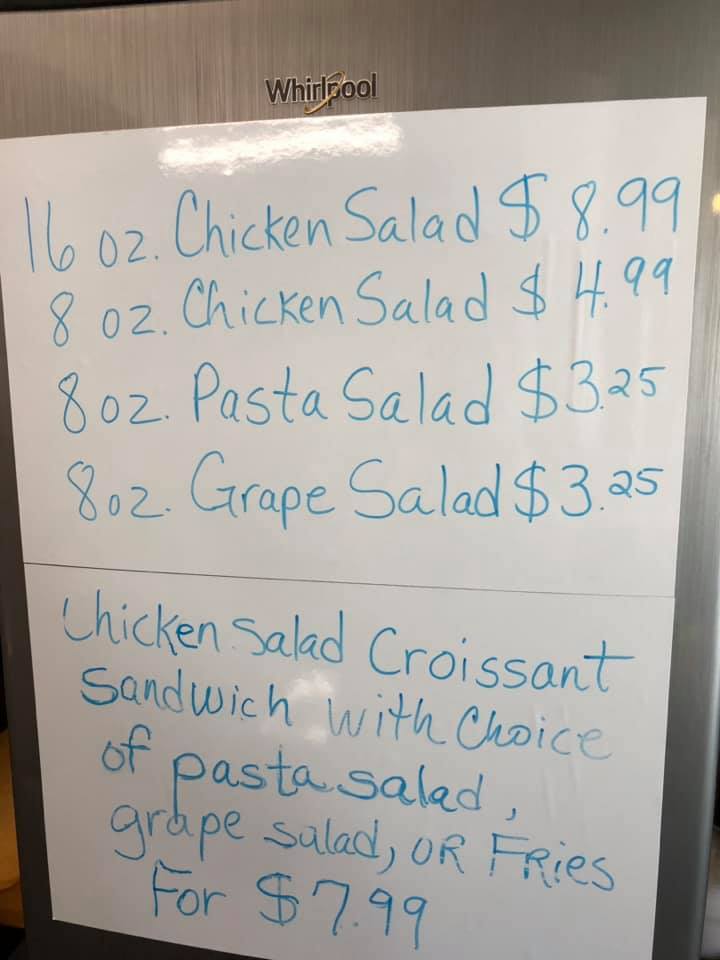 Whirlpool
16 oz. Chicken Salad $ 8.99
8 oz. Chicken Salad $ 4.99
8 oz. Pasta Salad $3.25
8 oz. Grape Salad $3.25
Chicken Salad Croissant
Sandwich with Choice
of pasta salad,
grape salad, OR FRies
For $7.99